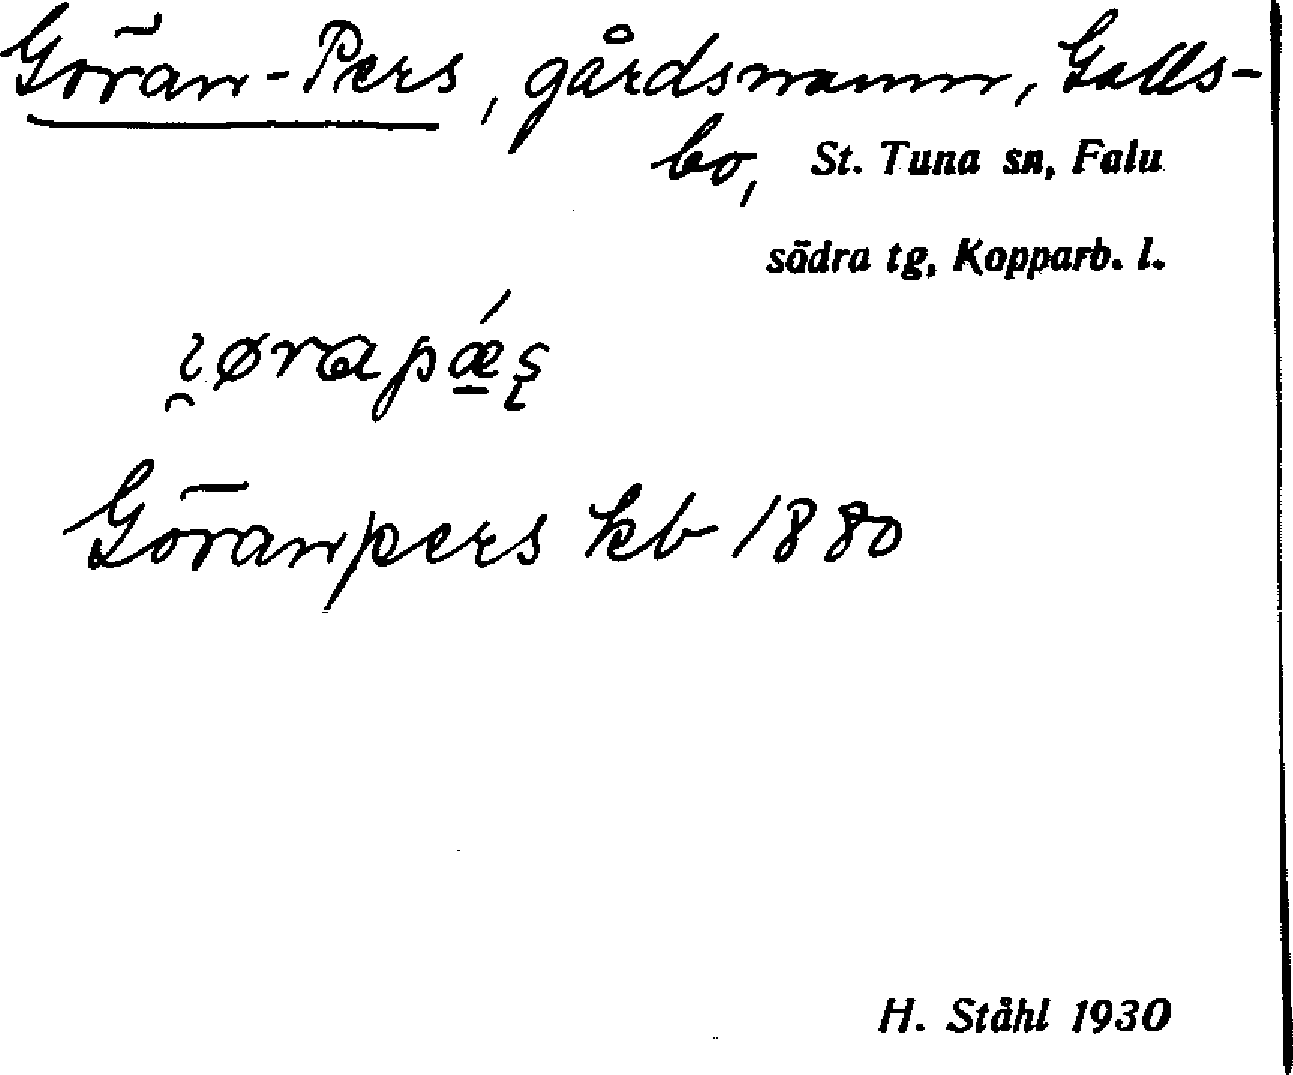 Göran-Pers, gårdsnamn, Galls-
bo, St. Tuna sn, Falu
södra tg, Kopparb. l.
Göranpers kb 1880
H. Ståhl 1930